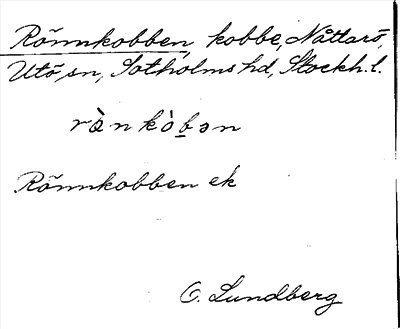 Rönnkobben, kobbe, Nåttarö,
Utö sn, Sotholms hd, Stockh. l.
rànkòbən
Rönnkobben ek
O. Lundberg